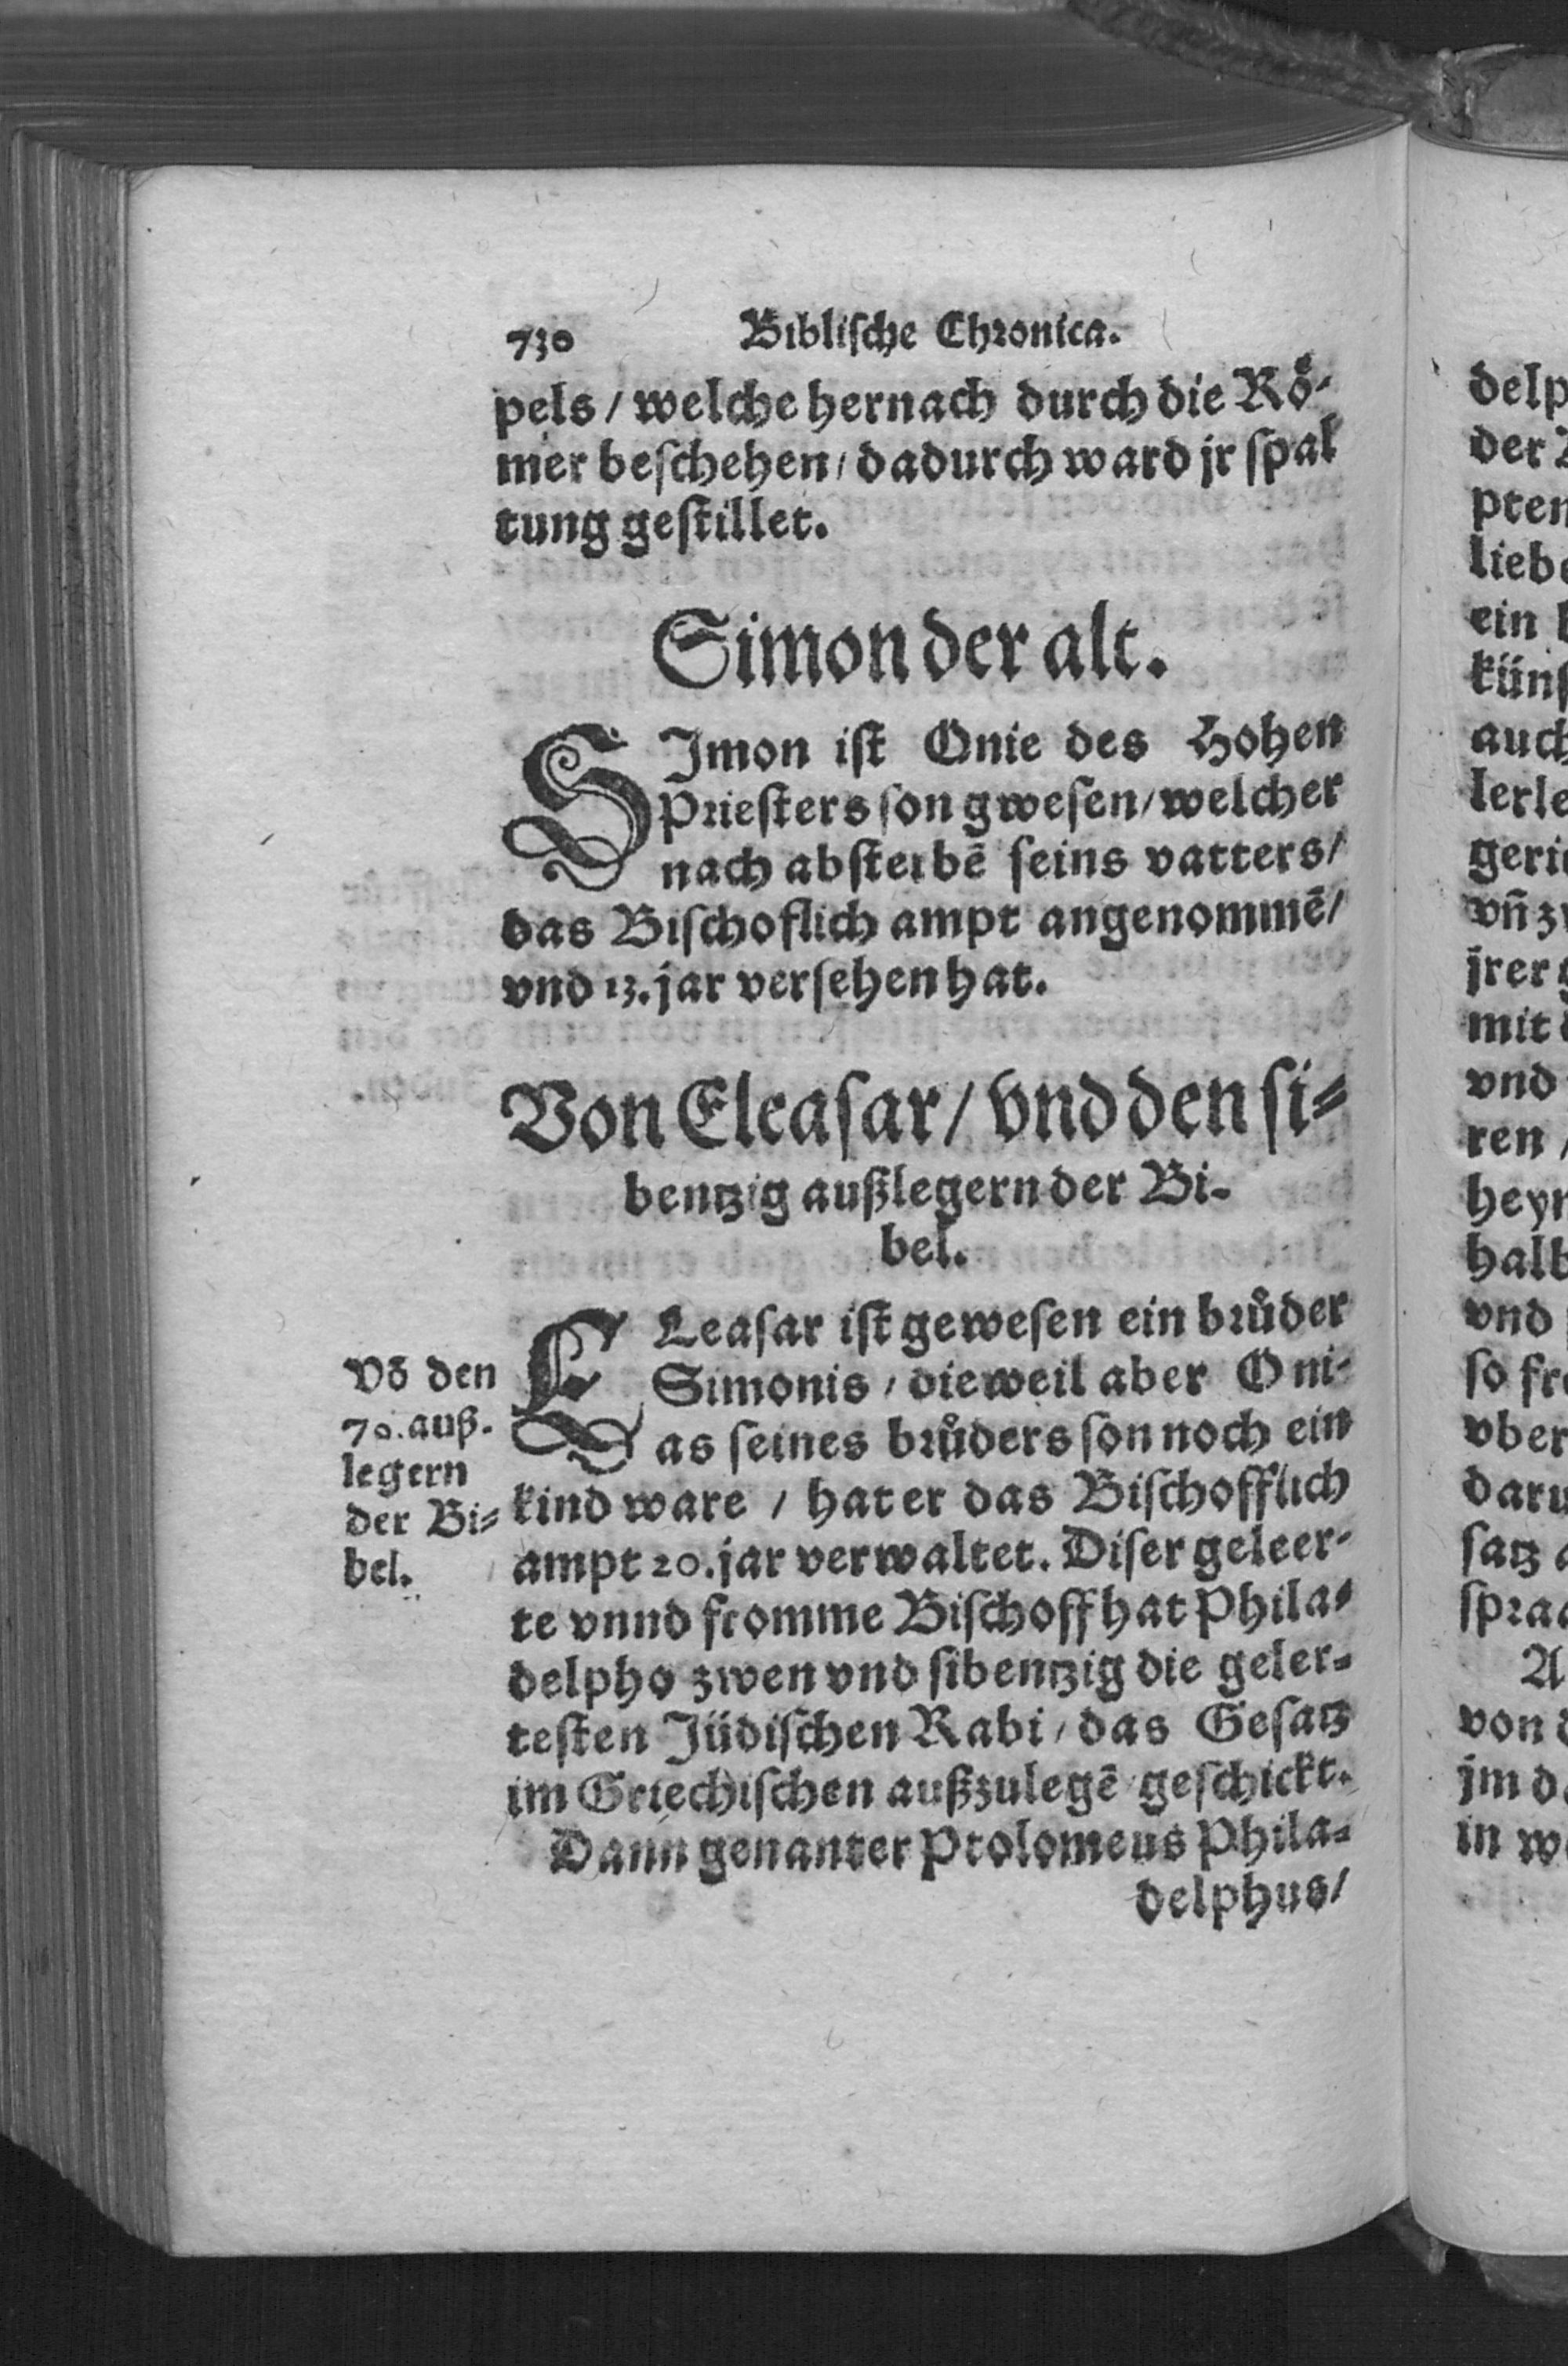 730 Biblische Chronica.
pels / welche hernach durch die Rö-
mer beschehen / dadurch ward jr spal
tung gestillet.
Simon der alt.
SJmon ist Onie des Hohen
Priesters son gwesen / welcher
nach absterbē seins vatters /
das Bischoflich ampt angenommē /
vnd 13. jar versehen hat.
Von Eleasar / vnd den si-
bentzig außlegern der Bi-
bel.
ELeasar ist gewesen ein brůder
Simonis / dieweil aber Oni-
as seines brůders son noch ein
kind ware / hat er das Bischofflich
ampt 20. jar verwaltet. Diser geleer-
te vnnd fromme Bischoff hat Phila-
delpho zwen vnd sibentzig die geler-
testen Jüdischen Rabi / das Gesatz
im Griechischen außzulegē geschickt.
Dann genanter Ptolomeus Phila-
delphus /
Vō den
70. auß-
legern
der Bi-
bel.
delp
der
pten
liebe
ein
küns
auch
lerle
geri
vn̄ z
jrer g
mit
vnd
ren /
heyn
halb
vnd
so fr
vber
daru
satz
spra
A
von d
jm d
in w